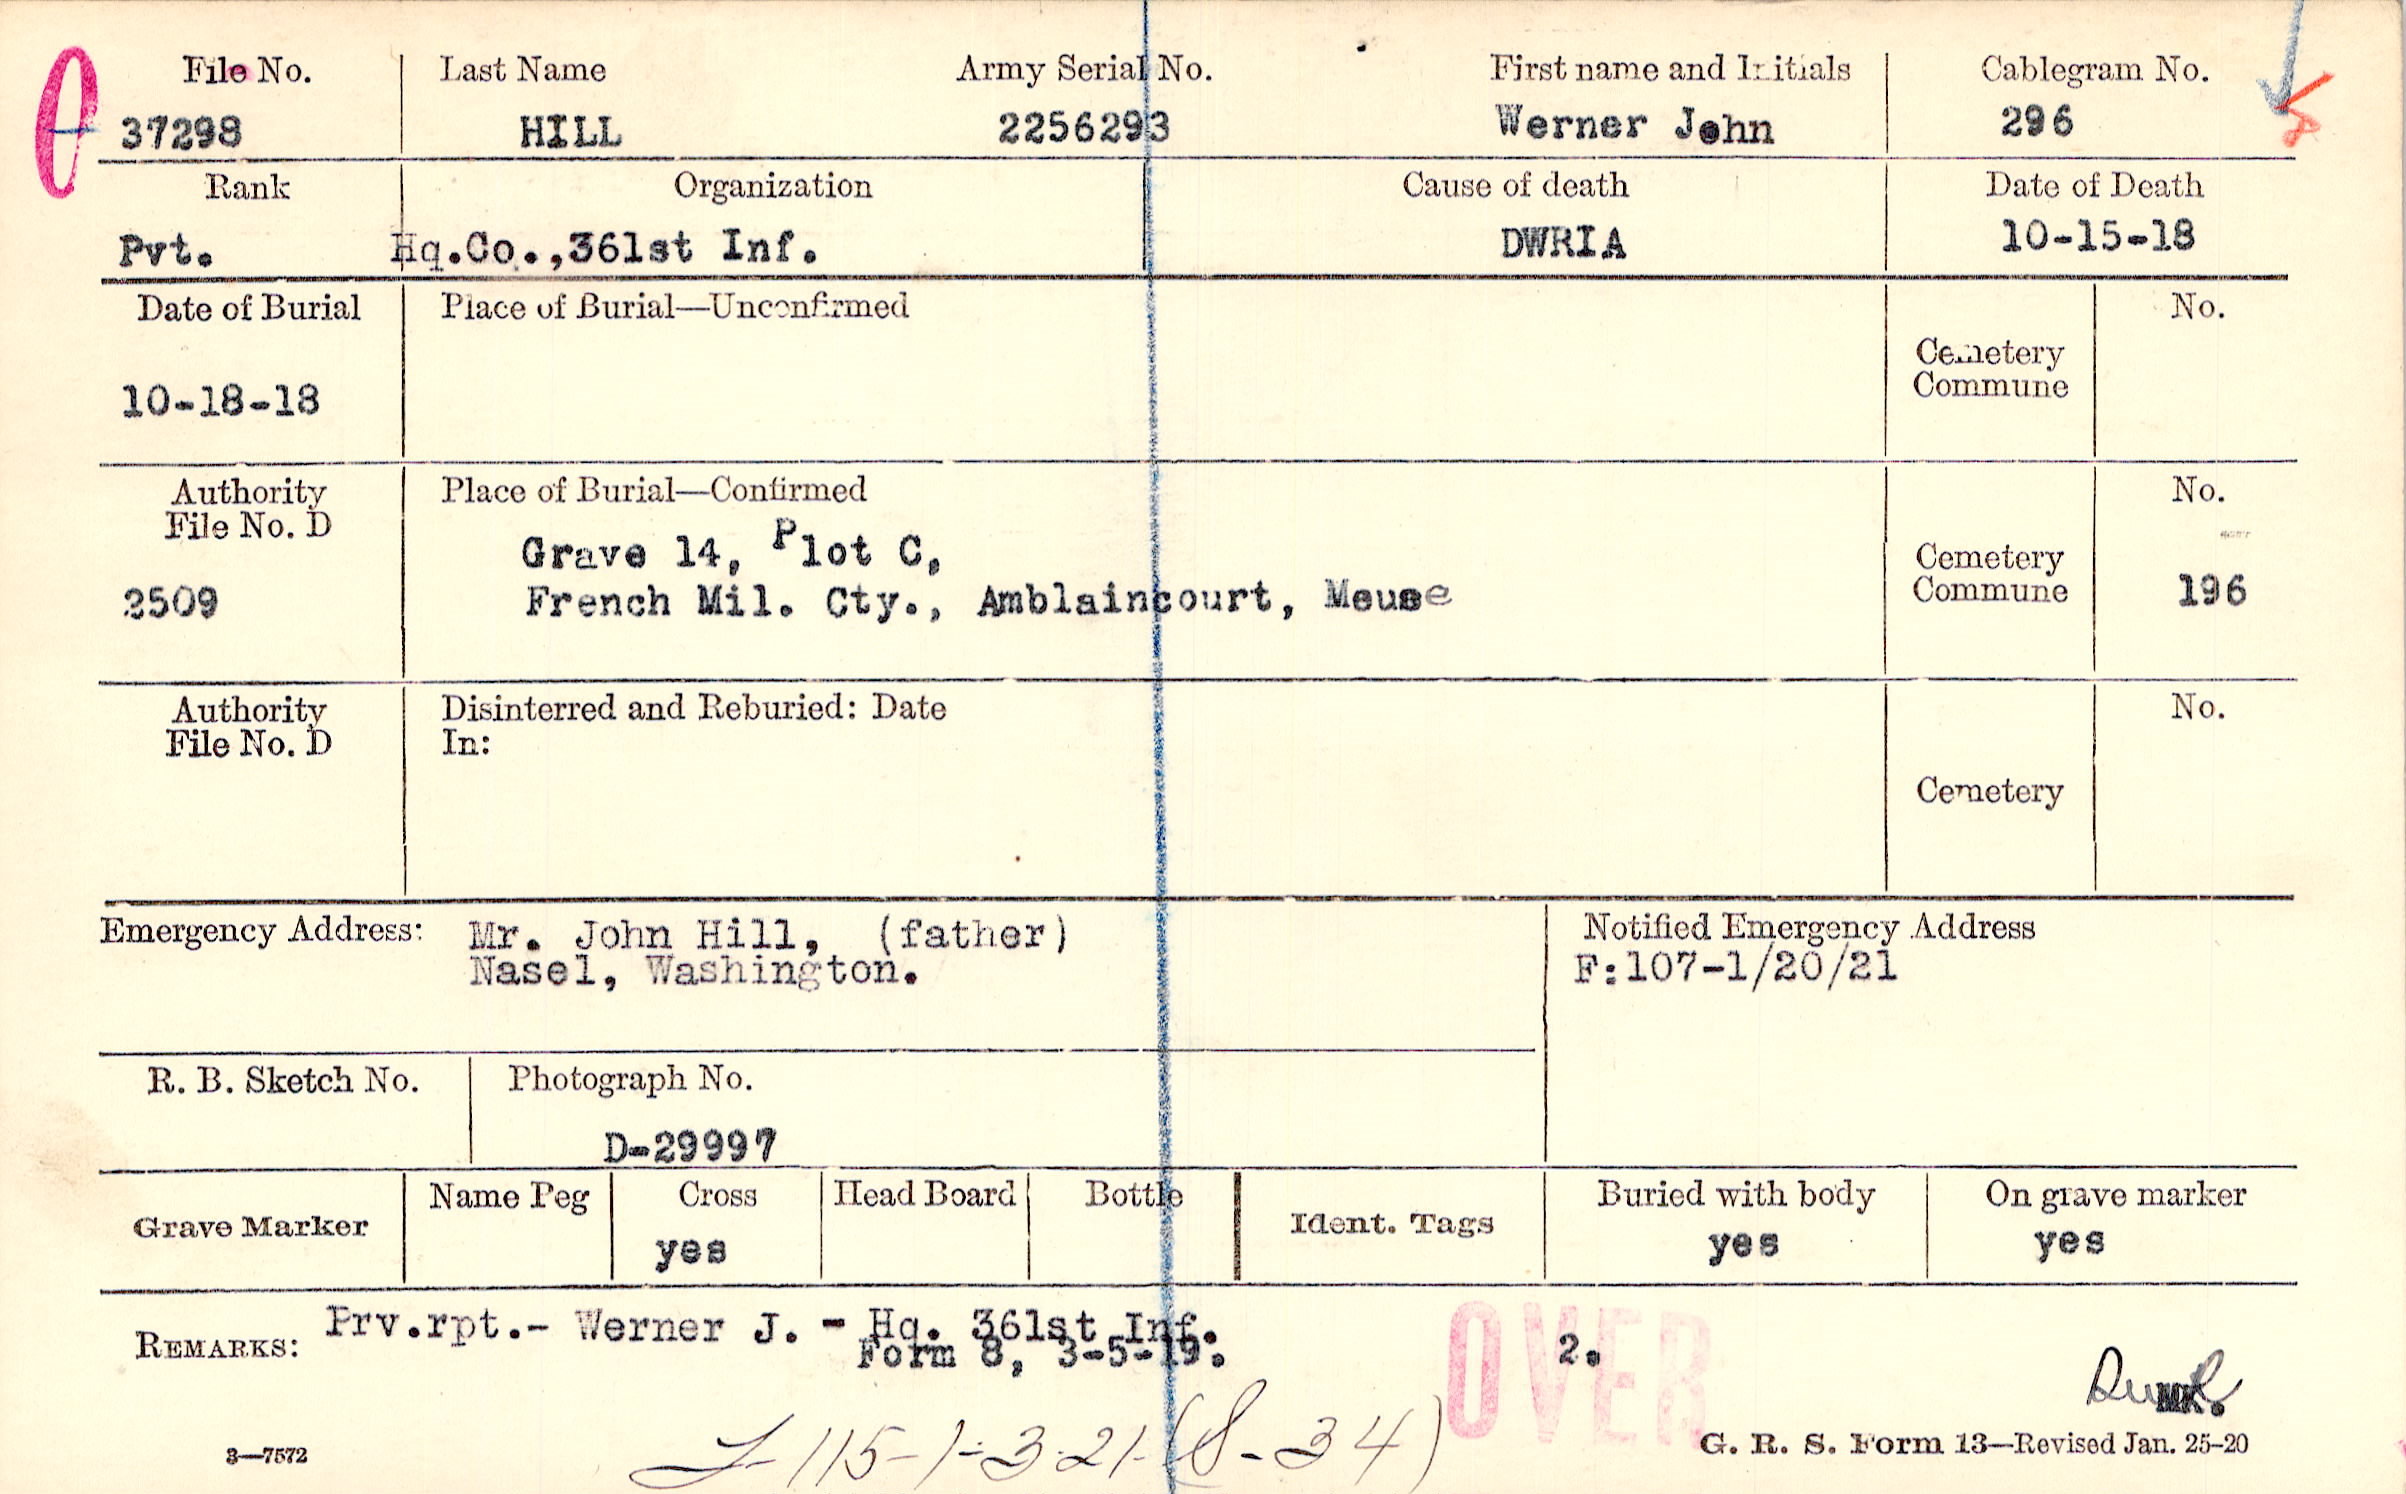 File No. Last Name Army Serial No. First name and Initials Cablegram No.
37298 HILL 2256293 Werner John 296
Rank Organization Cause of death Date of Death
Pvt. Hq.Co.,361st Inf. DWRIA 10-15-18
Date of Burial Place of Burial—Unconfirmed No.
Cemetery
Commune
10-18-18
Authority Place of Burial—Confirmed No.
File No. D
Grave 14, Plot C,
Cemetery
Commune
2509 French Mil. Cty., Amblaincourt, Meuse 196
Authority Disinterred and Reburied: Date No.
File No. D In:
Cemetery
Emergency Address: Mr. John Hill, (father)
Nasel, Washington.
Notified Emergency Address
F:107-1/20/21
R. B. Sketch No. Photograph No.
D-29997
Grave Marker Name Peg Cross Head Board Bottle Ident. Tags Buried with body On grave marker
yes yes yes
REMARKS: Prv.rpt.- Werner J. - Hq. 361st Inf.
Form 8, 3-5-19. 2.
OVER
MK.
115-1-3-21-(8-34)
3—7572 G. R. S. Form 13—Revised Jan. 25-20